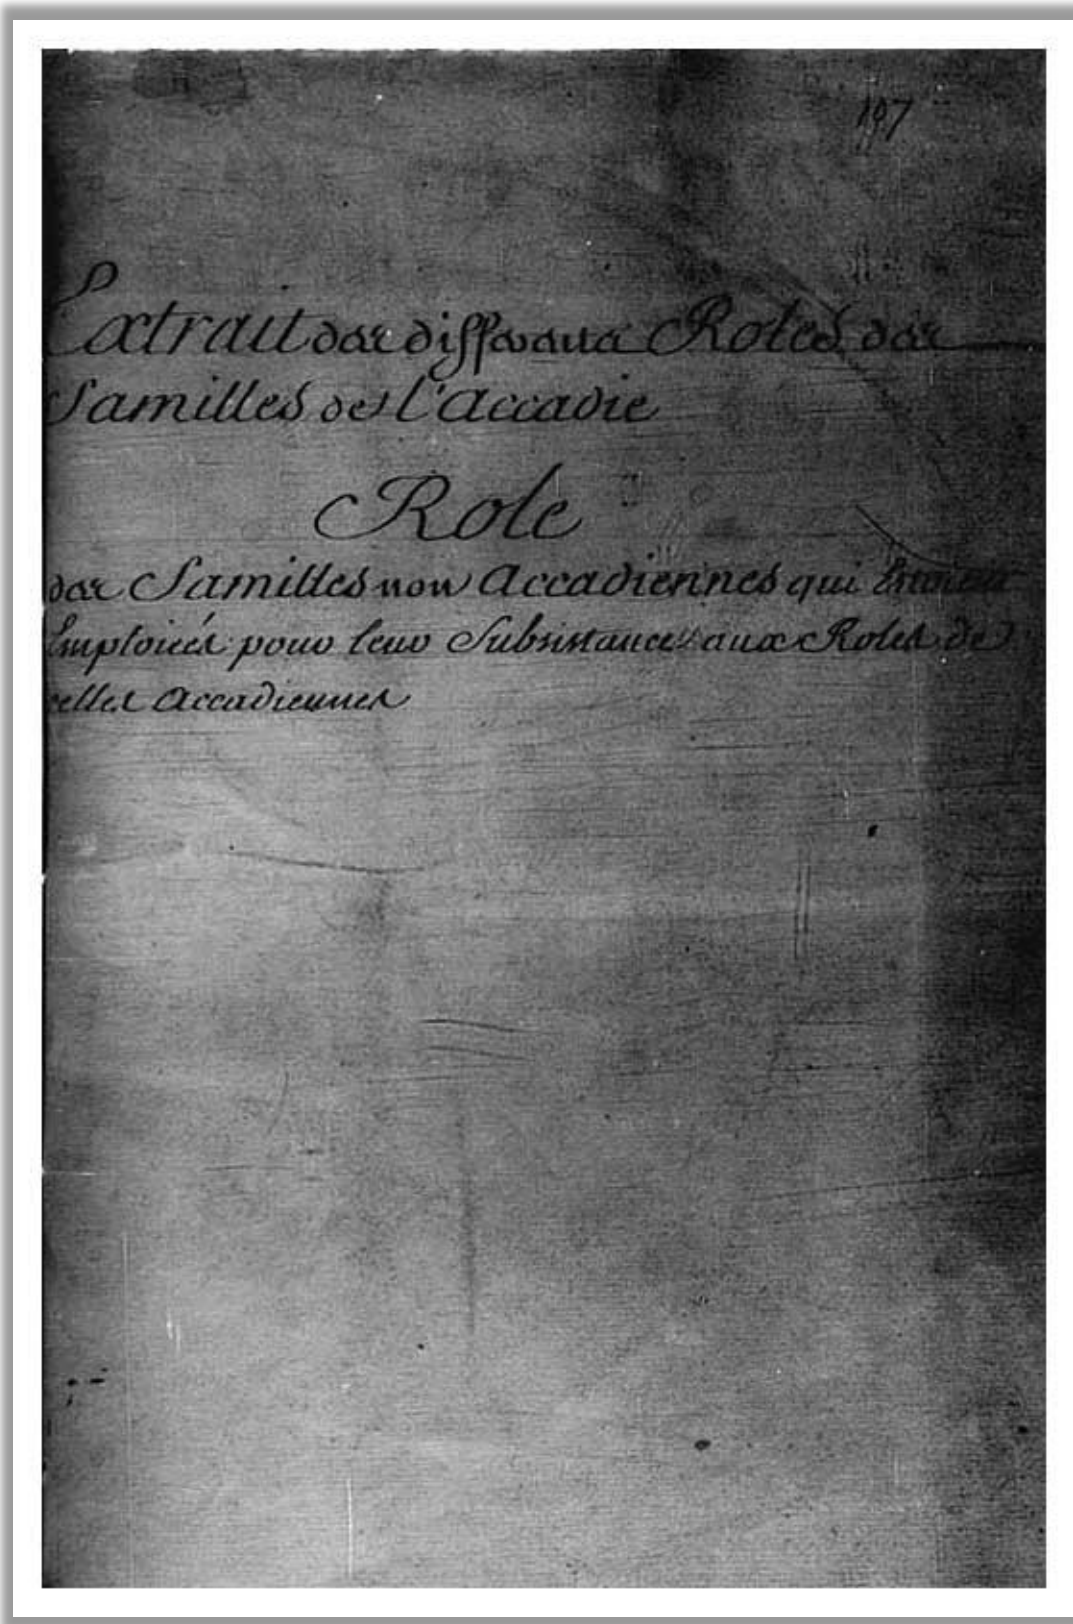 197
Extrait des differents Roles des
familles de l'Accadie
Role
des familles non Accadiennes qui
Emploiées pour leur Subsistance aux Roles de
celles Accadiennes